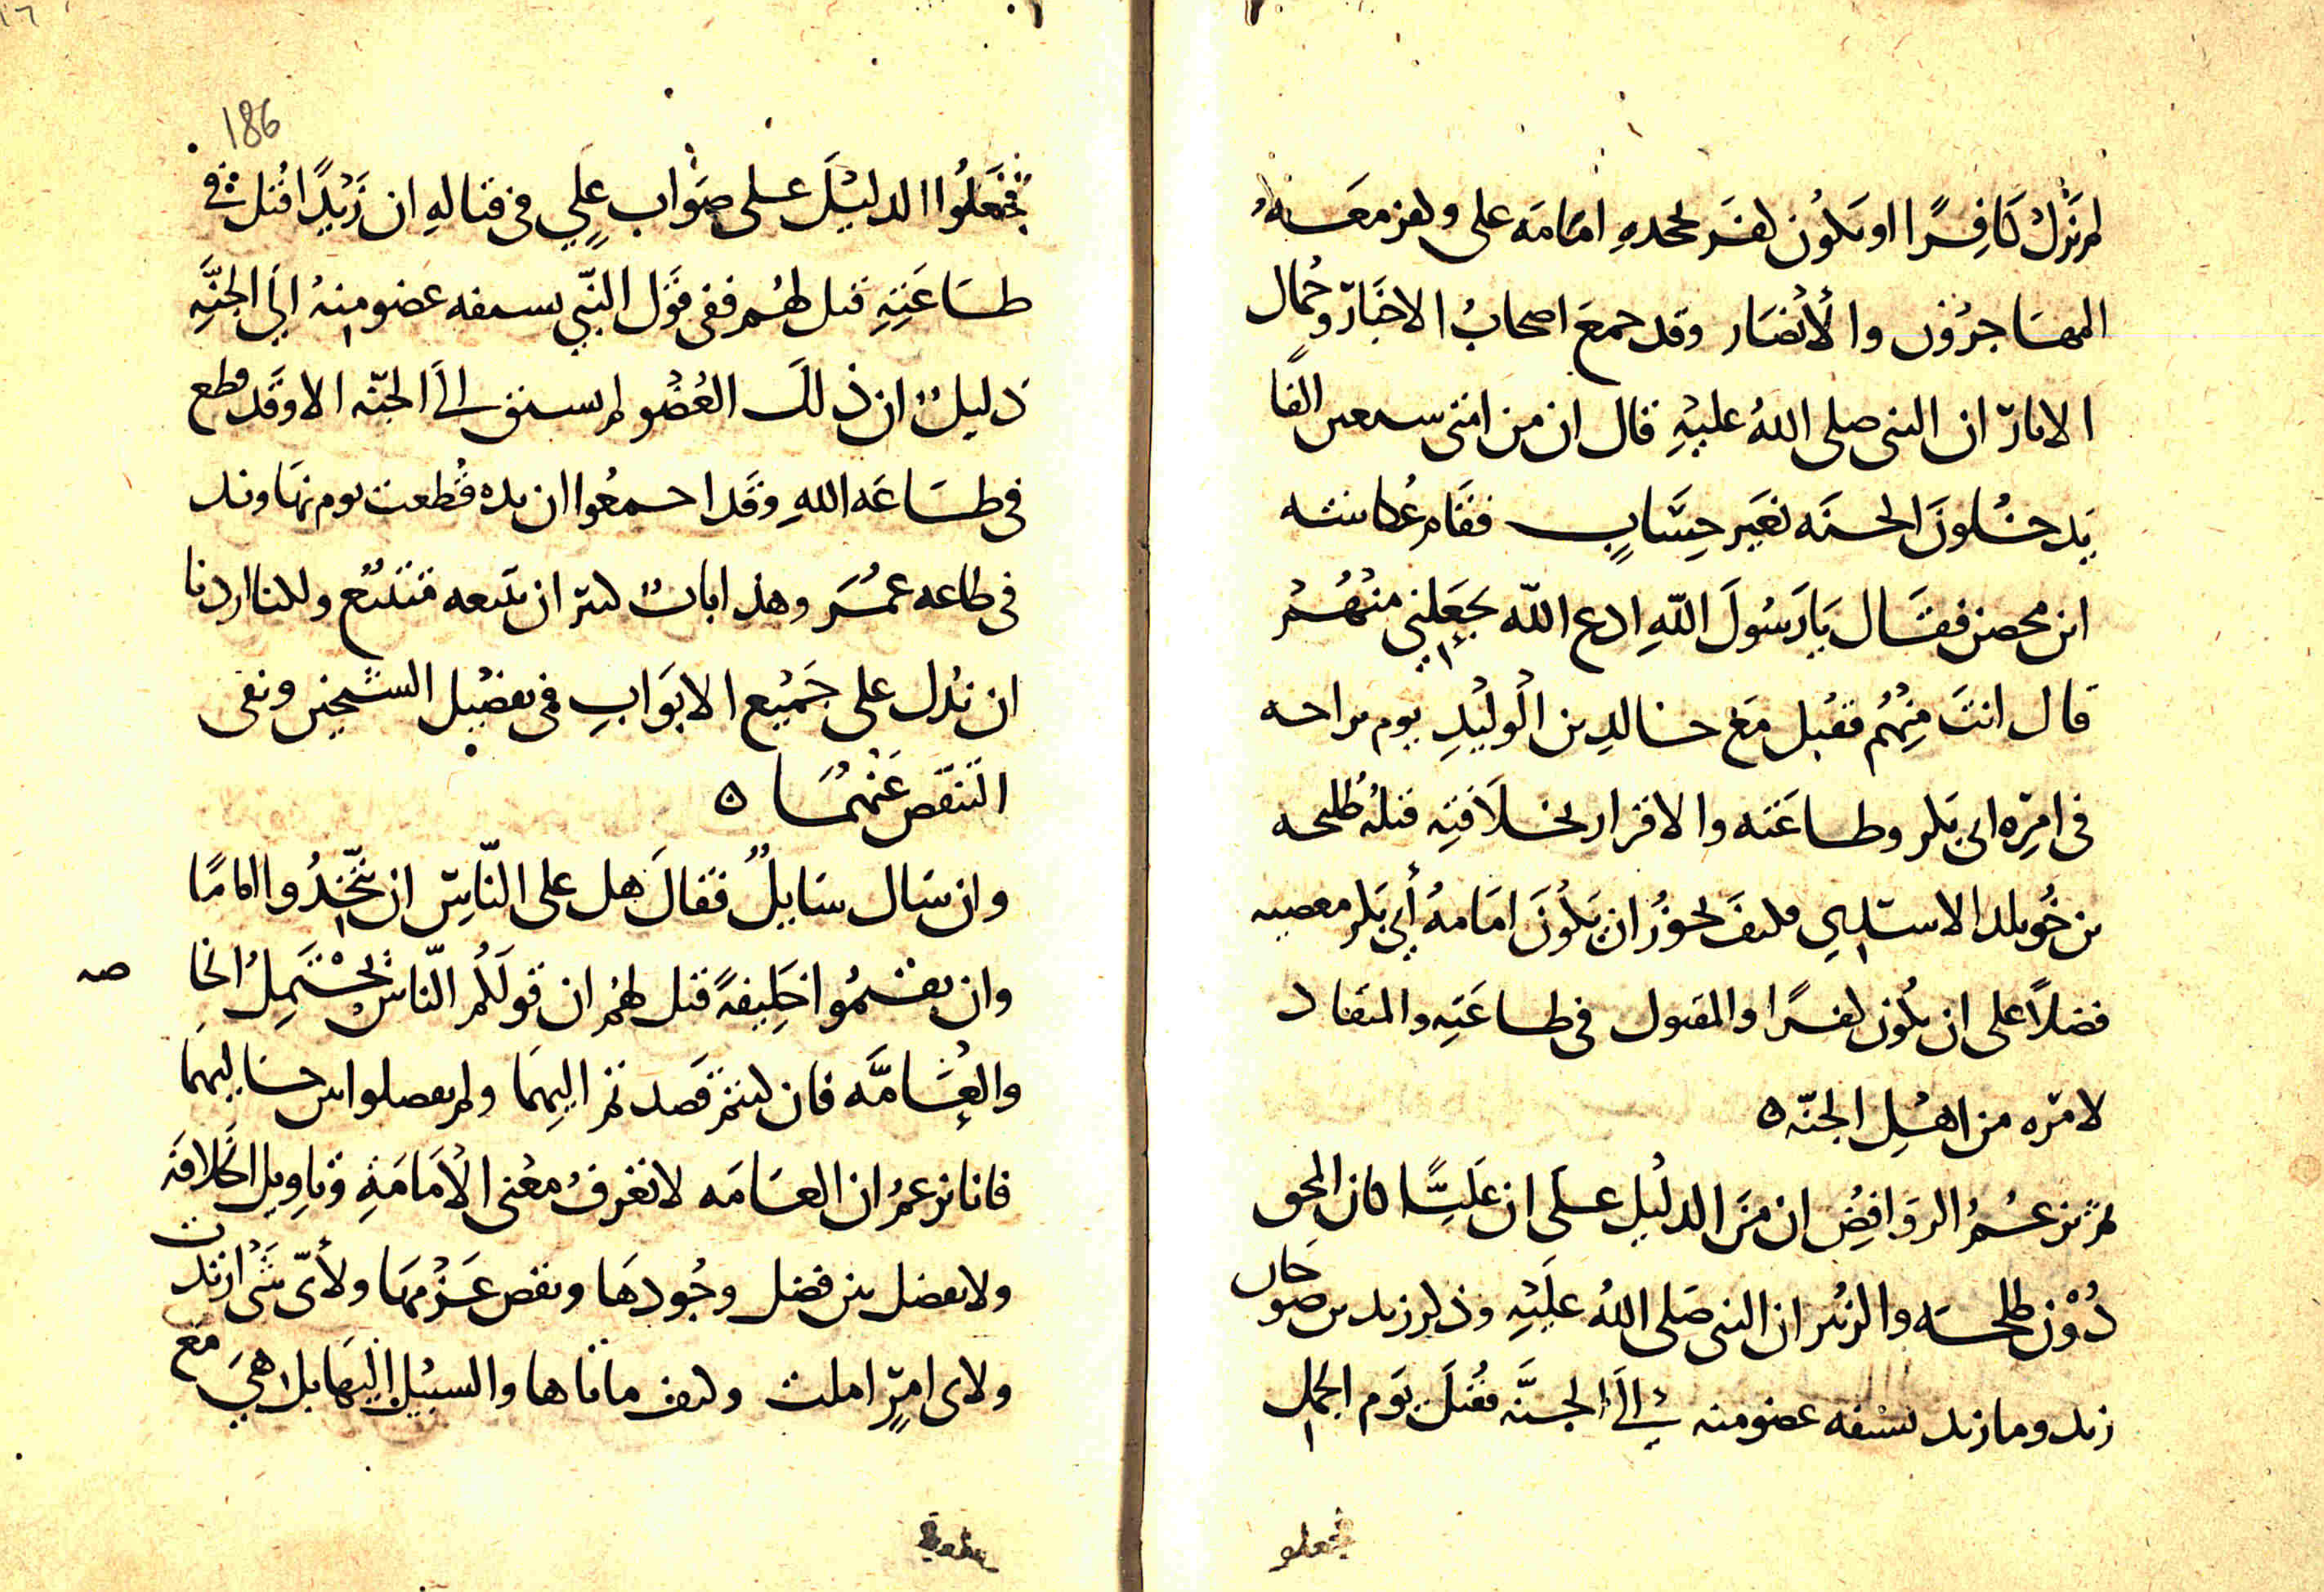 لم نزل كافرا او يكون كفر بجحده امامة على وكفر معه
المهاجرون والأنصار وقد جمع اصحاب الاخبار وحمال
الاثار ان النبى صلى الله عليه قال ان من امتى سبعين الفا
يدخلون الجنه بغير حساب فقام عكاشه
ابن محصن فقال يا رسول الله ادع الله يجعلنى منهم
قال انت منهم فقتل مع خالد بن الوليد يوم براحه
فى امره ابى بكر وطاعته والاقرار بخلافته قتله طليحه
بن خويلد الاسدي فكيف يجوز ان يكون امامه أبى بكر معصيه
فضلا على ان يكون كفرا والمقتول فى طاعته والمنقاد
لامره من اهل الجنه ه
ثم تزعم الروافض ان من الدليل على ان عليا كان المحق
دون طلحه والزبير ان النبى صلى الله عليه وذكر زيد بن صوحان
زيد وما زيد يسبقه عضو منه الى الجنه فقتل يوم الجمل
فجعلو
186
فجعلوا الدليل على صواب علي فى قتاله ان زيدا قتل فى
طاعته قيل لهم ففى قول النبي يسبقه عضو منه الى الجنه
دليل ان ذلك العضو لم يسبق الى الجنه الا وقد قطع
فى طاعه الله وقد اجمعوا ان يده قطعت يوم نهاوند
فى طاعه عمر وهذا باب كبير ان نتبعه فتتبع ولكنا اردنا
ان ندل على جميع الابواب فى تفضيل الشيخين ونفى
التنقص عنهما ه
وان سال سايل فقال هل على الناس ان يتخذوا اماما
وان يقيموا خليفة قيل لهم ان قولكم الناس يحتمل الخا
صه
والعامه فان كنتم قصدتم اليهما ولم تفصلوا بين حاليهما
فانا نزعم ان العامه لا تعرف معنى الأمامة وتاويل الخلافه
ولا تفصل بين فضل وجودها ونقص عدمها ولأى شى ارتدت
ولاى امر املت وكيف ماتاها والسبيل اليها بل هى مع